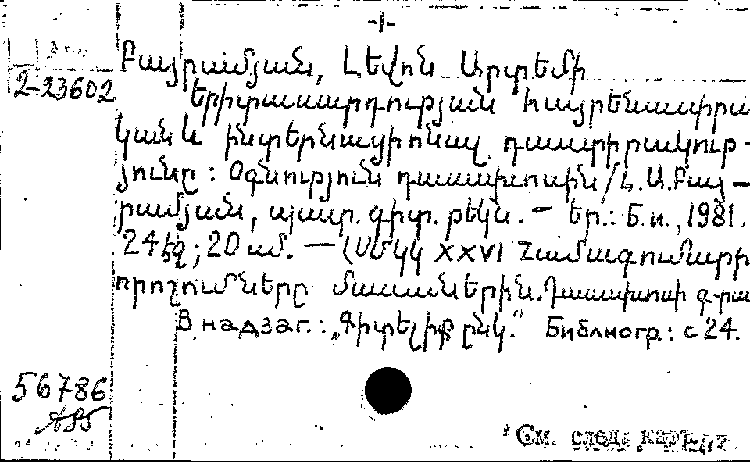 -1-
Բայրամյան, Լևոն Արտեմի
2-23602
Երիտասարդության հայրենասիրա
կան և ինտերնացիոնալ դաստիրակութ-
յունը : Օգնություն դասախոսին / Լ. Ա. Բայ-
րամյան, պատ. գիտ. թեկն. — Եր.: Б. и., 1981.
24 էջ ; 20 սմ. — (ՍՄԿԿ XXVI համագումարի
որոշումները մասաներին. Դասախոսի գ-րա
В надзаг.: „Գիտելիք ընկ." Библиогр.: с 24.
56786
См. след. карт.